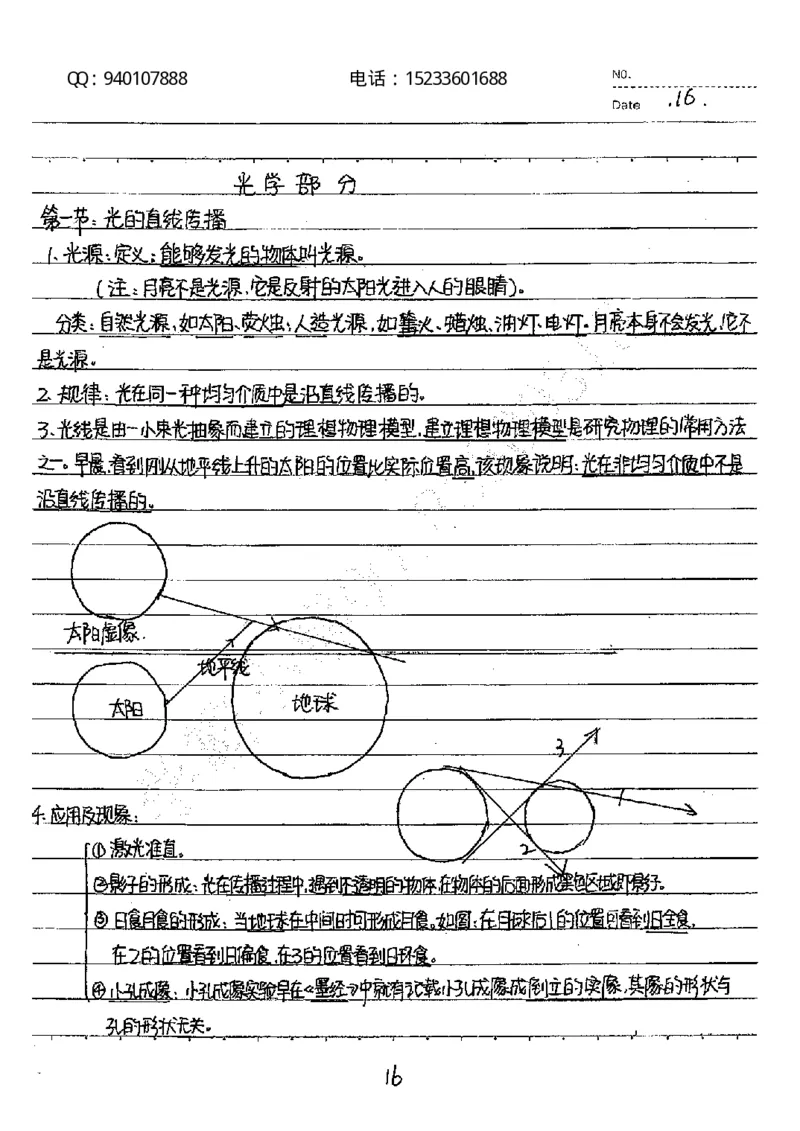 QQ：940107888 电话：15233601688 NO.
Date .16.
光学部分
第一节：光的直线传播
1、光源：定义：能够发光的物体叫光源。
（注：月亮不是光源，它是反射的太阳光进入人的眼睛）。
分类：自然光源，如太阳、萤火虫；人造光源，如篝火、蜡烛、油灯、电灯。月亮本身不会发光，它不
是光源。
2、规律：光在同一种均匀介质中是沿直线传播的。
3、光线是由一小束光抽象而建立的理想物理模型，建立理想物理模型是研究物理的常用方法
之一。早晨，看到刚从地平线上升的太阳的位置比实际位置高，该现象说明：光在非均匀介质中不是
沿直线传播的。
太阳虚像.
地平线
太阳
地球
3
1
2
4、应用及现象：
① 激光准直。
②影子的形成：光在传播过程中，遇到不透明的物体，在物体的后面形成黑色区域即影子。
③ 日食月食的形成：当地球在中间时可形成月食。如图：在月球后1的位置可看到日全食，
在2的位置看到日偏食，在3的位置看到日环食。
④小孔成像：小孔成像实验早在《墨经》中就有记载小孔成像成倒立的实像，其像的形状与
孔的形状无关。
16